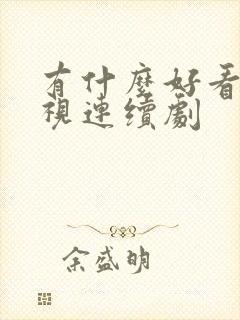 有什麼好看
視連續劇
余盛明